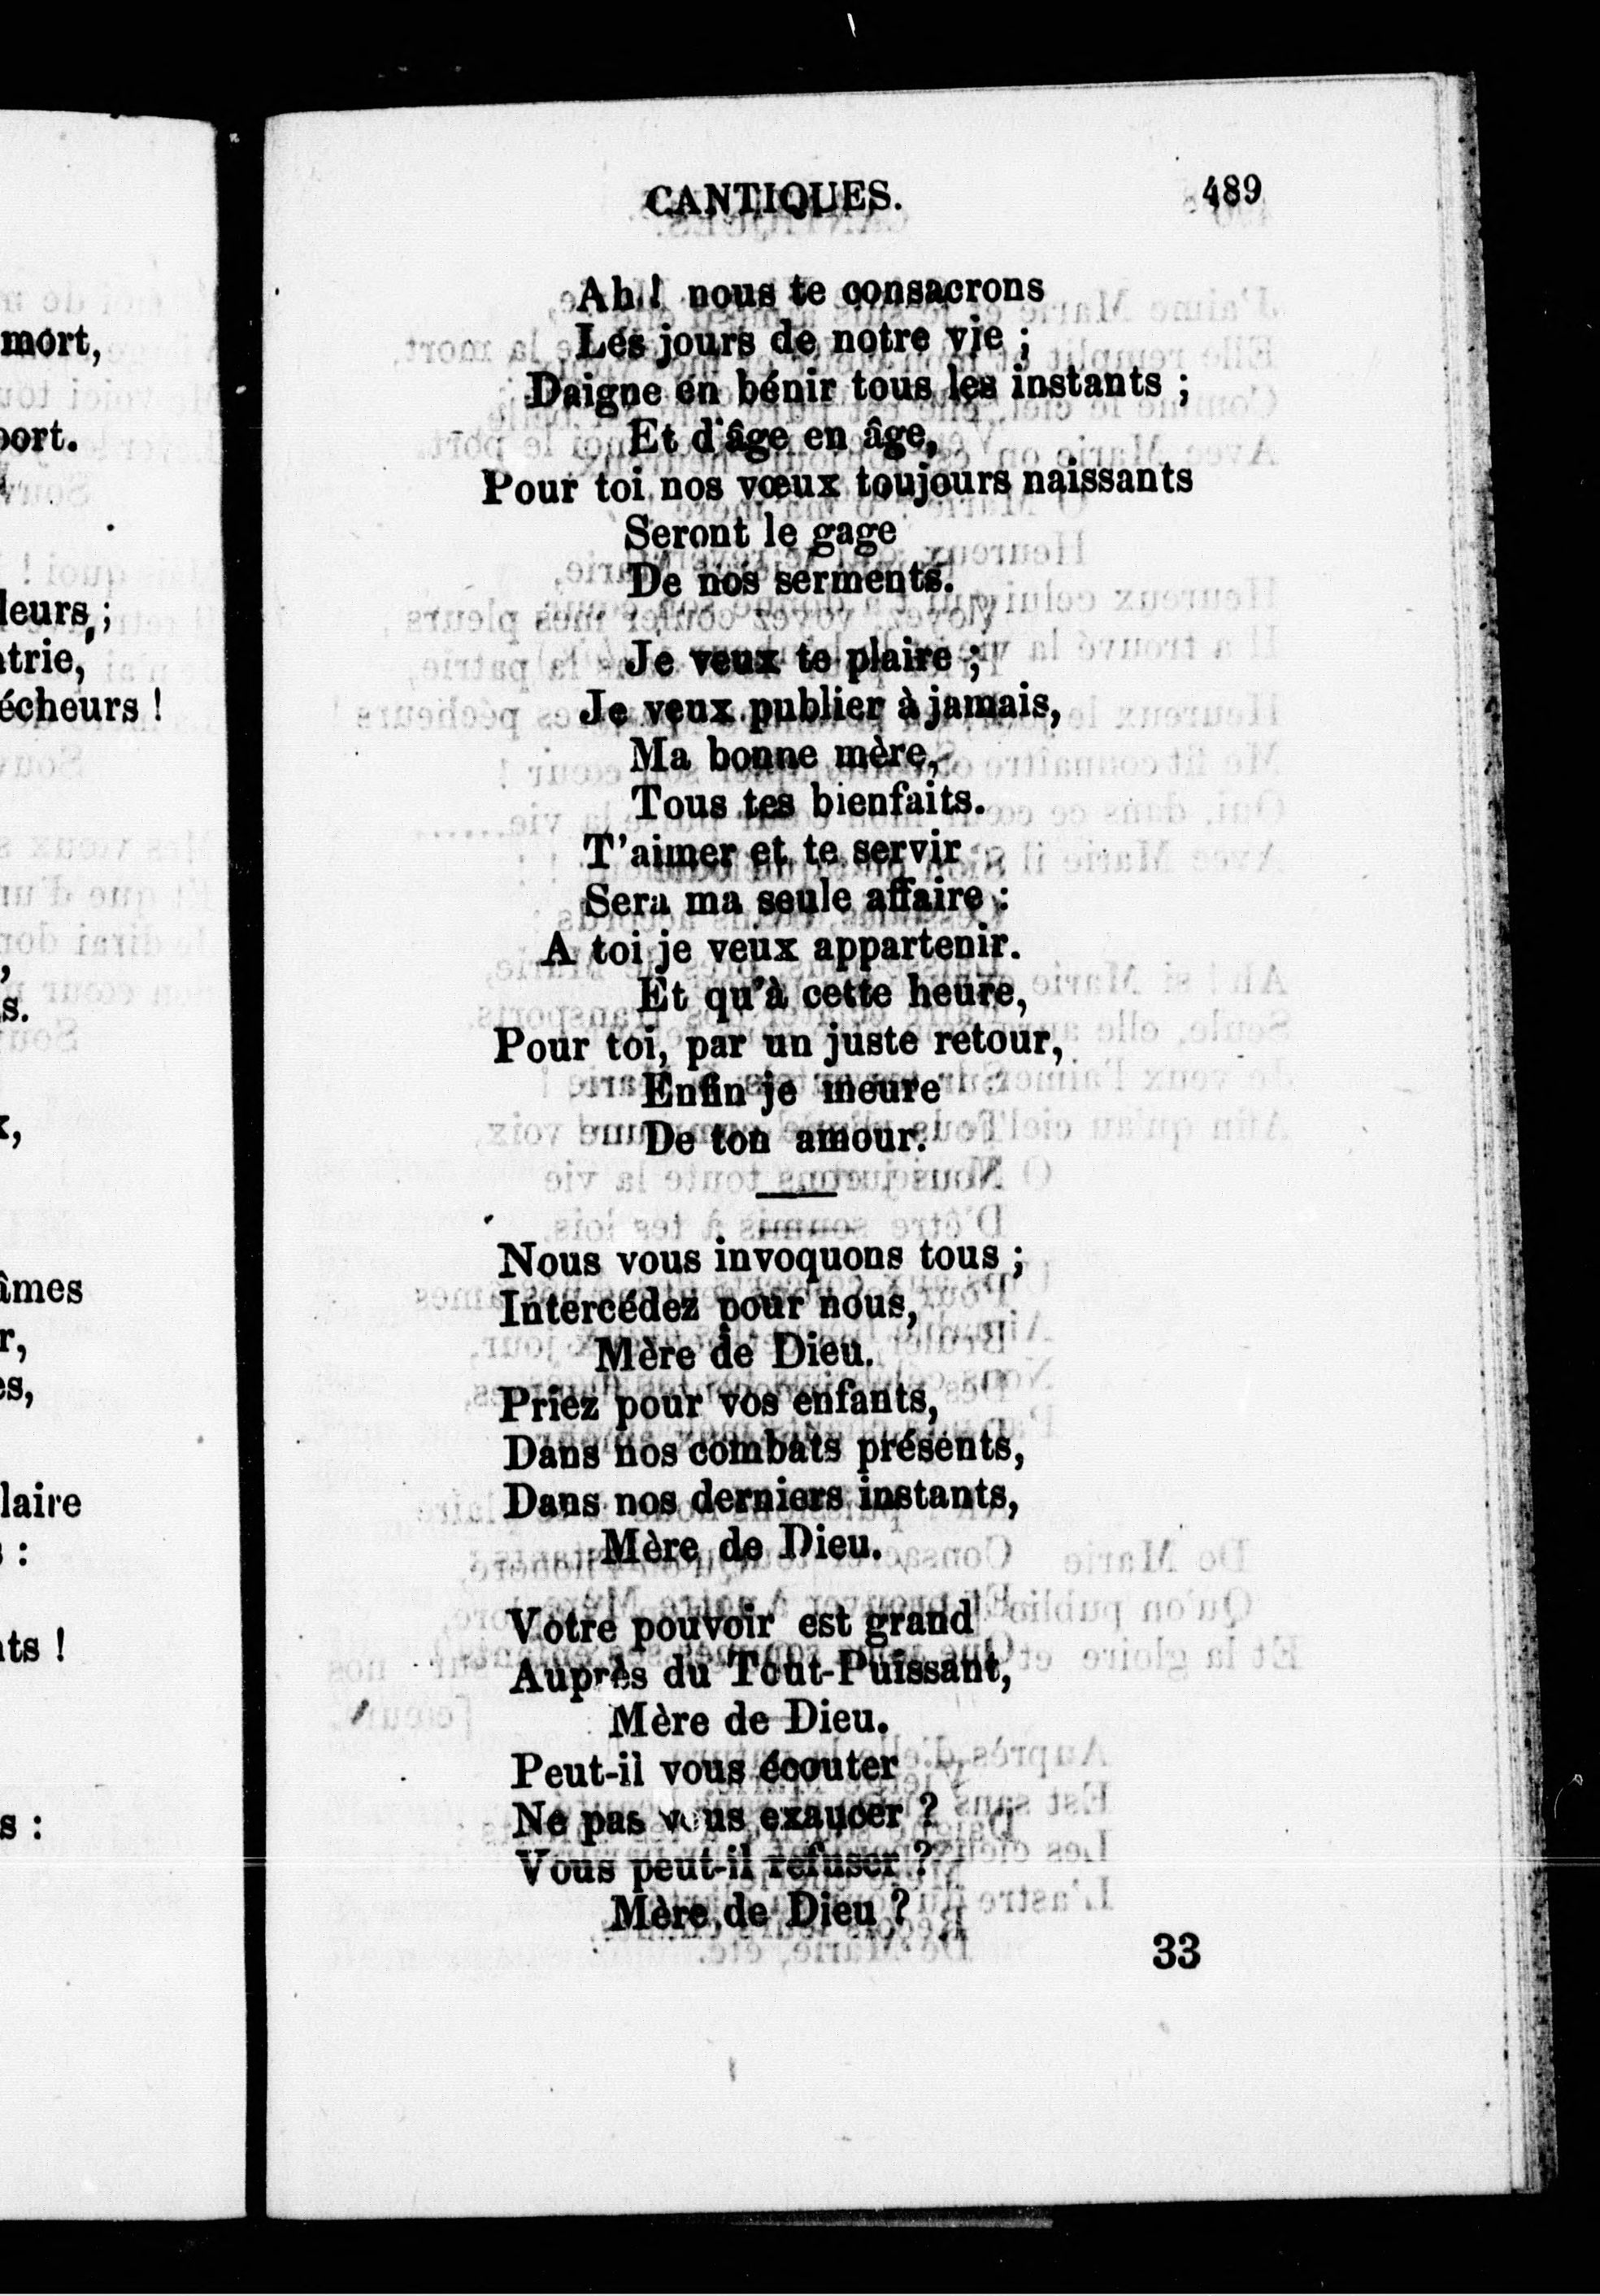 mort,
port.
leurs ;
atrie,
écheurs !
,
s.
x,
âmes
r,
es,
laire
s :
ats !
s :
CANTIQUES. 489
Ah ! nous te consacrons
Les jours de notre vie ;
Daigne en bénir tous les instants ;
Et d'âge en âge,
Pour toi nos vœux toujours naissants
Seront le gage
De nos serments.
Je veux te plaire ;
Je veux publier à jamais,
Ma bonne mère,
Tous tes bienfaits.
T'aimer et te servir
Sera ma seule affaire :
A toi je veux appartenir.
Et qu'à cette heure,
Pour toi, par un juste retour,
Enfin je meure
De ton amour.
Nous vous invoquons tous ;
Intercédez pour nous,
Mère de Dieu.
Priez pour vos enfants,
Dans nos combats présents,
Dans nos derniers instants,
Mère de Dieu.
Votre pouvoir est grand
Auprès du Tout-Puissant,
Mère de Dieu.
Peut-il vous écouter
Ne pas vous exaucer ?
Vous peut-il refuser ?
Mère de Dieu ?
33